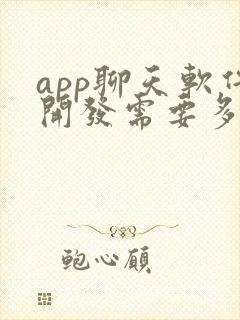 app聊天軟件
開發需要多
鮑心顧